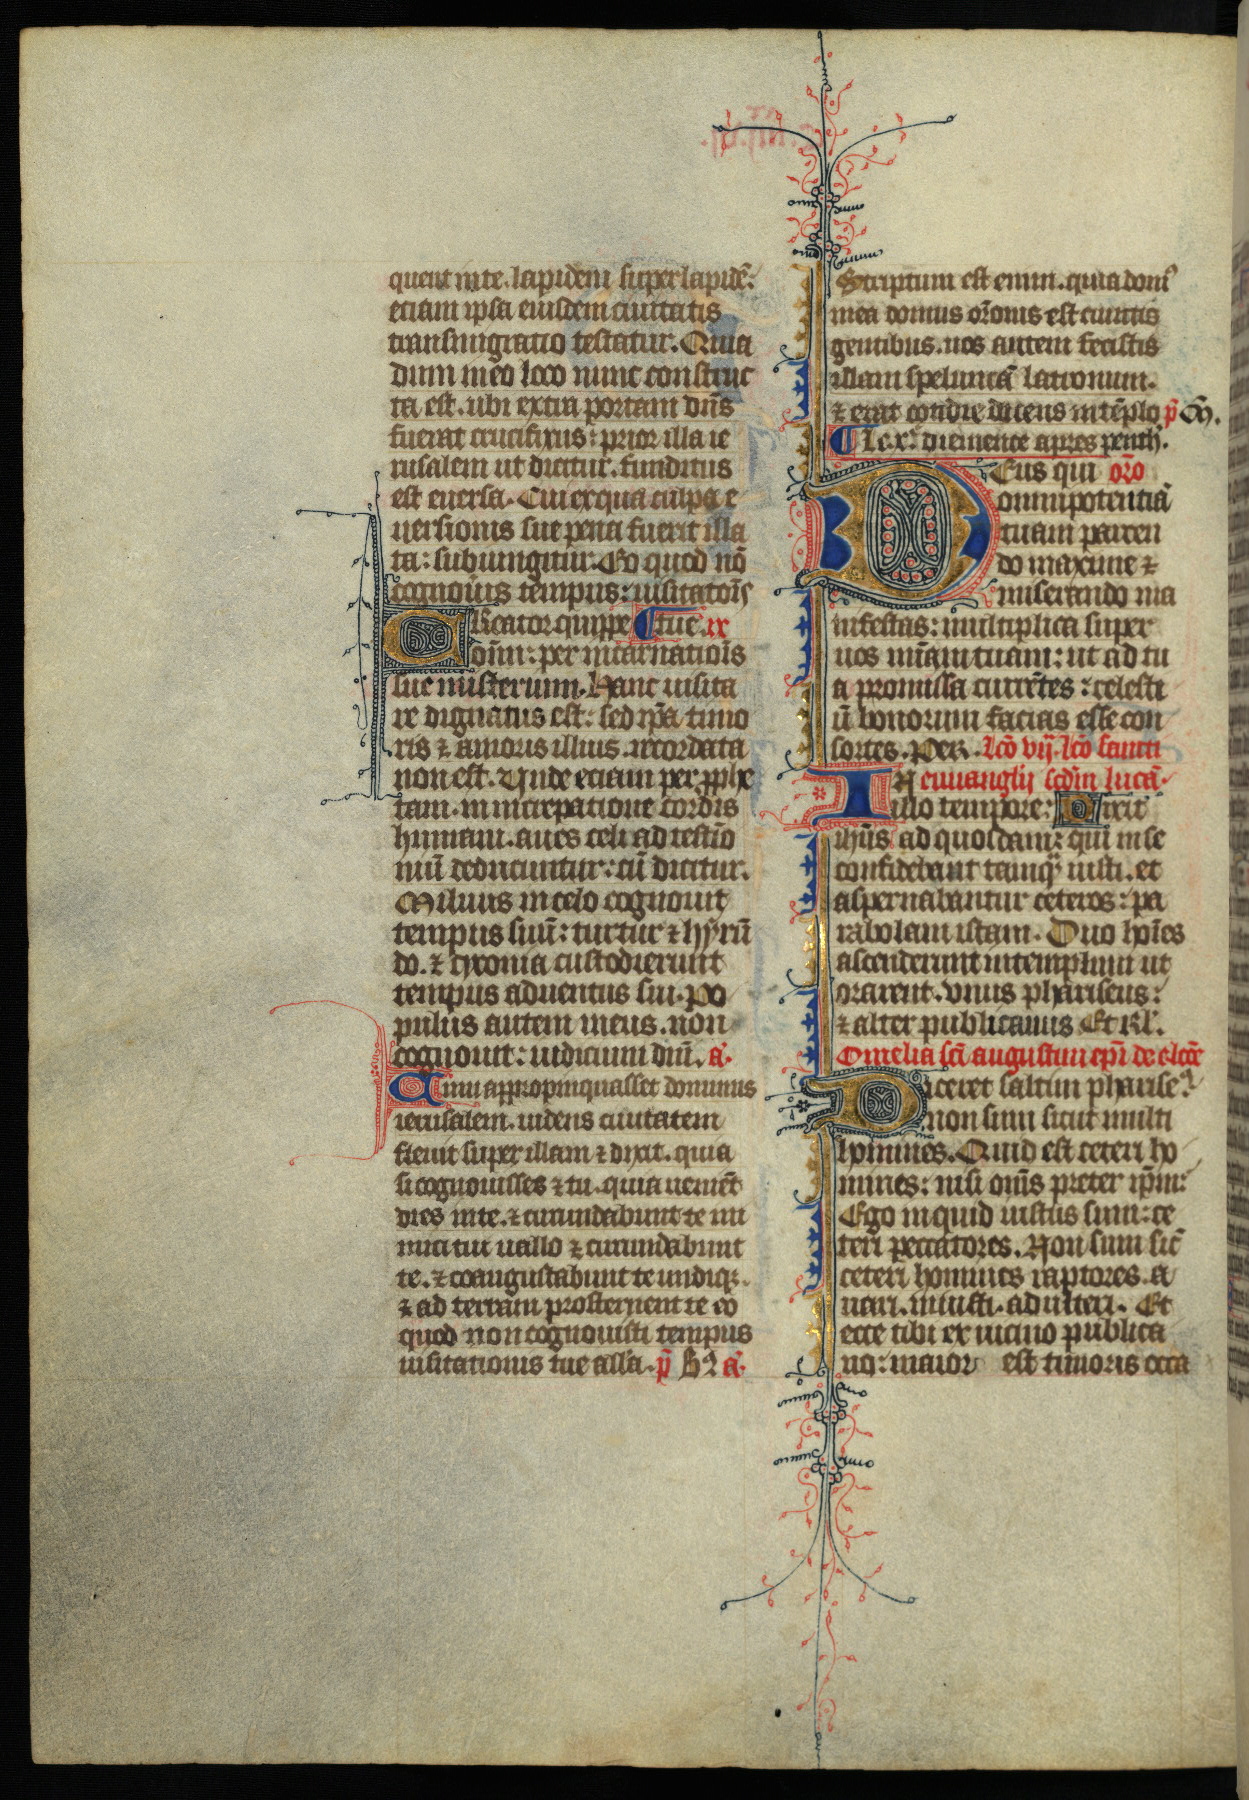 quent in te. lapidem super lapidē:
etiam ipsa eiusdem ciuitatis
transmigratio testatur. Quia
dum in eo loco nunc construc
ta est. ubi extra portam dn̄s
fuerat crucifixus: prior illa ie
rusalem ut dicitur. funditus
est euersa. Cui ex qua culpa e
uersionis sue pena fuerit illa
ta: subiungitur. Eo quod nō
cognouis tempus: uisitatoīs
Creator quippe tue. ix
om̄: per incarnatiōis
sue misterium. Hanc uisita
re dignatus est: sed ip̄a timo
ris ⁊ amoris illius. recordata
non est. Unde etiam per ꝓphe
tam. in increpatione cordis
humani. aues celi ad testīo
niū deducuntur: cū dicitur.
Miluus in celo cognouit
tempus suū: turtur ⁊ hyrū
do. ⁊ cyconia custodierunt
tempus aduentus sui. Po
pulus autem meus. non
cognouit: iudicium dn̄i. a͂.
Cum appropinquasset dominus
ierusalem. uidens ciuitatem
fleuit super illam ⁊ dixit. quia
si cognouisses ⁊ tu. quia ueniēt
dies in te. ⁊ circundabunt te ini
mici tui uallo ⁊ circundabunt
te. ⁊ coangustabunt te undiqꝫ.
⁊ ad terram prosternent te eo
quod non cognouisti tempus
uisitationis tue alla. p̄ a͂.
Scriptum est enim. quia domꝰ
mea domus orōnis est cunctis
gentibus. uos autem fecistis
illam speluncā latronum.
⁊ erat cotidie docens in tēplo p̄
le .x. diemence apres penth̄.
Deus qui orō
omnipotentiā
tuam parcen
do maxime ⁊
miserando ma
nifestas: multiplica super
nos mīam tuam: ut ad tu
a promissa currētes: celesti
ū bonorum facias esse con
sortes. Per. lcō vij. lcō sancti
In euuanglij scdm̄ lucā.
illo tempore: Dixit
ihūs ad quosdam: qui in se
confidebant tamqͣ iusti. et
aspernabantur ceteros: pa
rabolam istam. Duo hoīes
ascenderunt in templum ut
orarent. vnus phariseus:
⁊ alter publicanus Et Rl̄.
Omelia scī augustini ep̄i de elcōe
Diceret saltim pharise
non sum sicut multi
homines. Quid est ceteri ho
mines: nisi om̄s preter ip̄m:
Ego inquid iustus sum: ce
teri peccatores. Non sum sic̄
ceteri homines raptores. a
uari. iniusti. adulteri. Et
ecce tibi ex uicino publica
no: maior est timoris occa